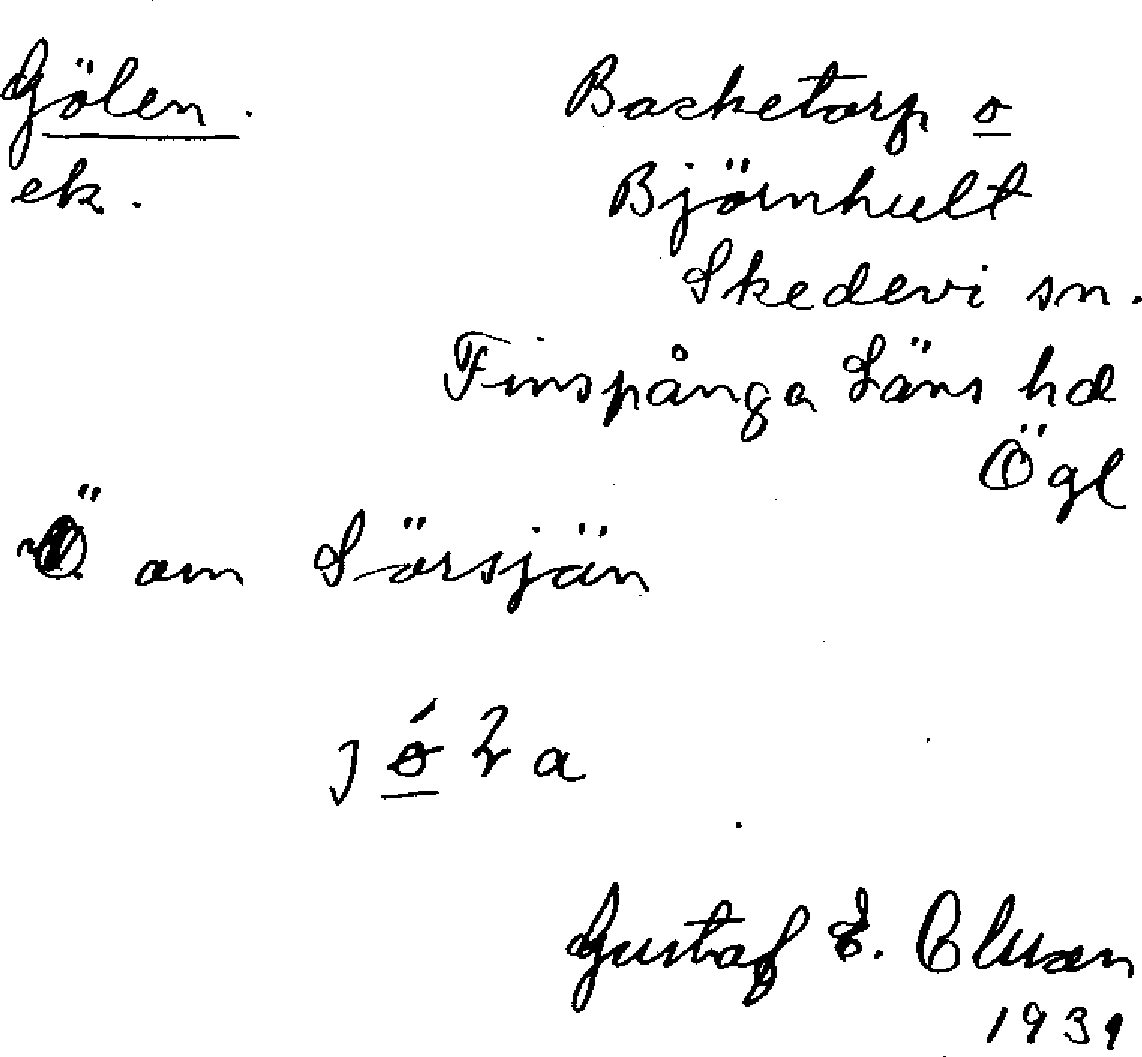 Gölen.
ek.
Backetorp o
Björnhult
Skedevi sn.
Finspånga Läns hd
Ögl
Ö om Sörsjön
Gustaf E.
1931